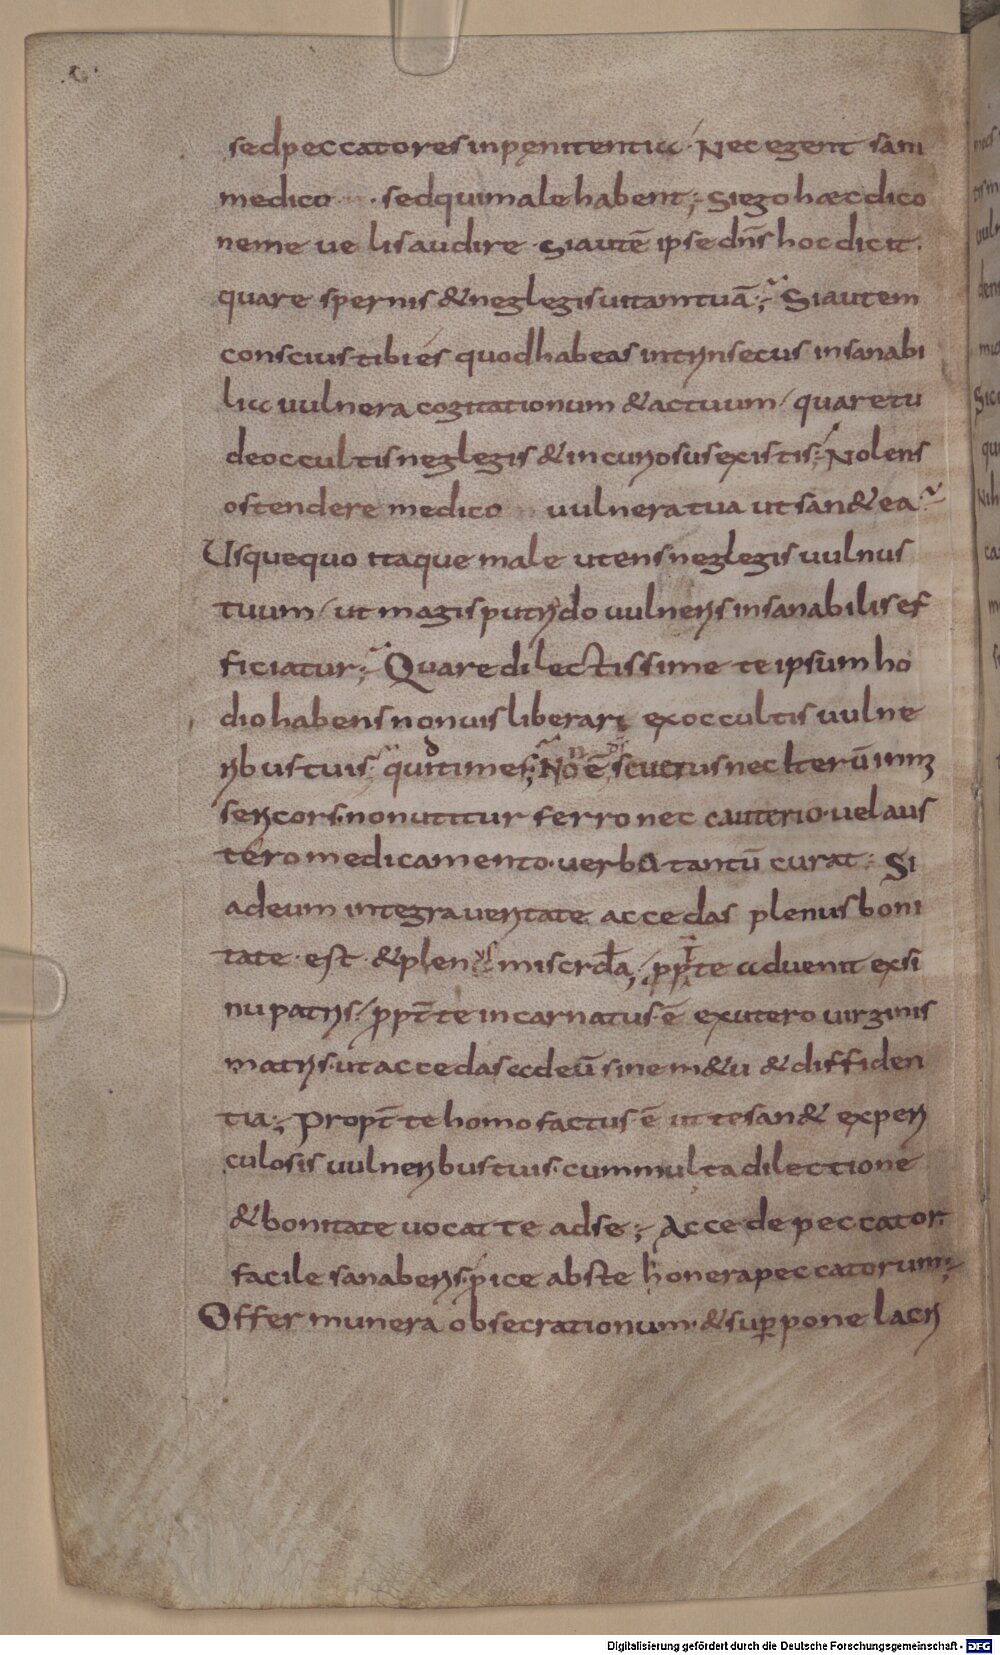 sed peccatores in pęnitentia. Nec egent sani
medico . sed qui male habent; Si ego haec dico
ne me velis audire. Si autē ipse dn̄s hoc dicit.
quare spernis & neglegis uitam tuā; Si autem
conscius tibi és quod habeas intrinsecus insanabi
lia uulnera cogitationum & actuum / quare tu
de occultis neglegis & incuriosus existis; Nolens
ostendere medico uulnera tua ut san& ea.
Usquequo itaque male utens neglegis uulnus
tuum / ut magis putrido uulneris insanabilis ef
ficiatur; Quare dilectissime te ipsum ho
dio habens non uis liberari ex occultis uulne
ribus tuis. quid times; Nō ē seuerus nec iterū inmi
sericors. non utitur ferro nec cauterio. uel aus
tero medicamento. uerbo tantū curat: Si
ad eum integra ueritate accedas plenus boni
tate est. & plenus miscrda, / ppt te aduenit ex si
nu patris / ppt te incarnatus ē ex utero uirginis
matris. ut accedas ad eū sine m&u & diffiden
tia; Propt te homo factus ē ut te san& ex peri
culosis uulneribus tuis. cum multa dilectione
& bonitate uocat te ad se; Accede peccator.
facile sanaberis. p̄ice abs te honera peccatorum;
Offer munera obsecrationum. & supppone lacri
Digitalisierung gefördert durch die Deutsche Forschungsgemeinschaft - DFG